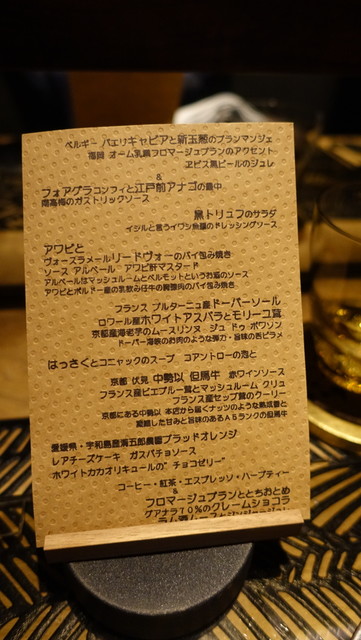 ベルギー バエリキャビアと新玉葱のブランマンジェ
福岡 オーム乳業フロマージュブランのアクセント
ヱビス黒ビールのジュレ
&
フォアグラコンフィと江戸前アナゴの最中
南高梅のガストリックソース
黒トリュフのサラダ
イシルと言うイワシ魚醤のドレッシングソース
アワビと
ヴォースラメールリードヴォーのパイ包み焼き
ソース アルベール アワビ肝マスタード
アルベールはマッシュルームとベルモットというお酒のソース
アワビとボルドー産の乳飲み仔牛の胸腺肉のパイ包み焼き
フランス ブルターニュ産ドーバーソール
ロワール産ホワイトアスパラとモリーユ茸
京都産海老芋のムースリンヌ ジュ ドゥ ポワソン
ドーバー海峡のお肉のような弾力・旨味の舌ビラメ
はっさくとコニャックのスープ コアントローの泡と
京都 伏見 中勢以 但馬牛 赤ワインソース
フランス産ピエブルー茸とマッシュルーム クリュ
フランス産セップ茸のクーリー
京都にある中勢以 本店から届くナッツのような熟成香と
凝縮した甘みと旨味のあるA5ランクの但馬牛
愛媛県・宇和島吉清五郎農園ブラッドオレンジ
レアチーズケーキ ガスパチョソース
ホワイトカカオリキュールの”チョコゼリー”
コーヒー・紅茶・エスプレッソ・ハーブティー
&
フロマージュブランととちおとめ
グアナラ70%のクレームショコラ